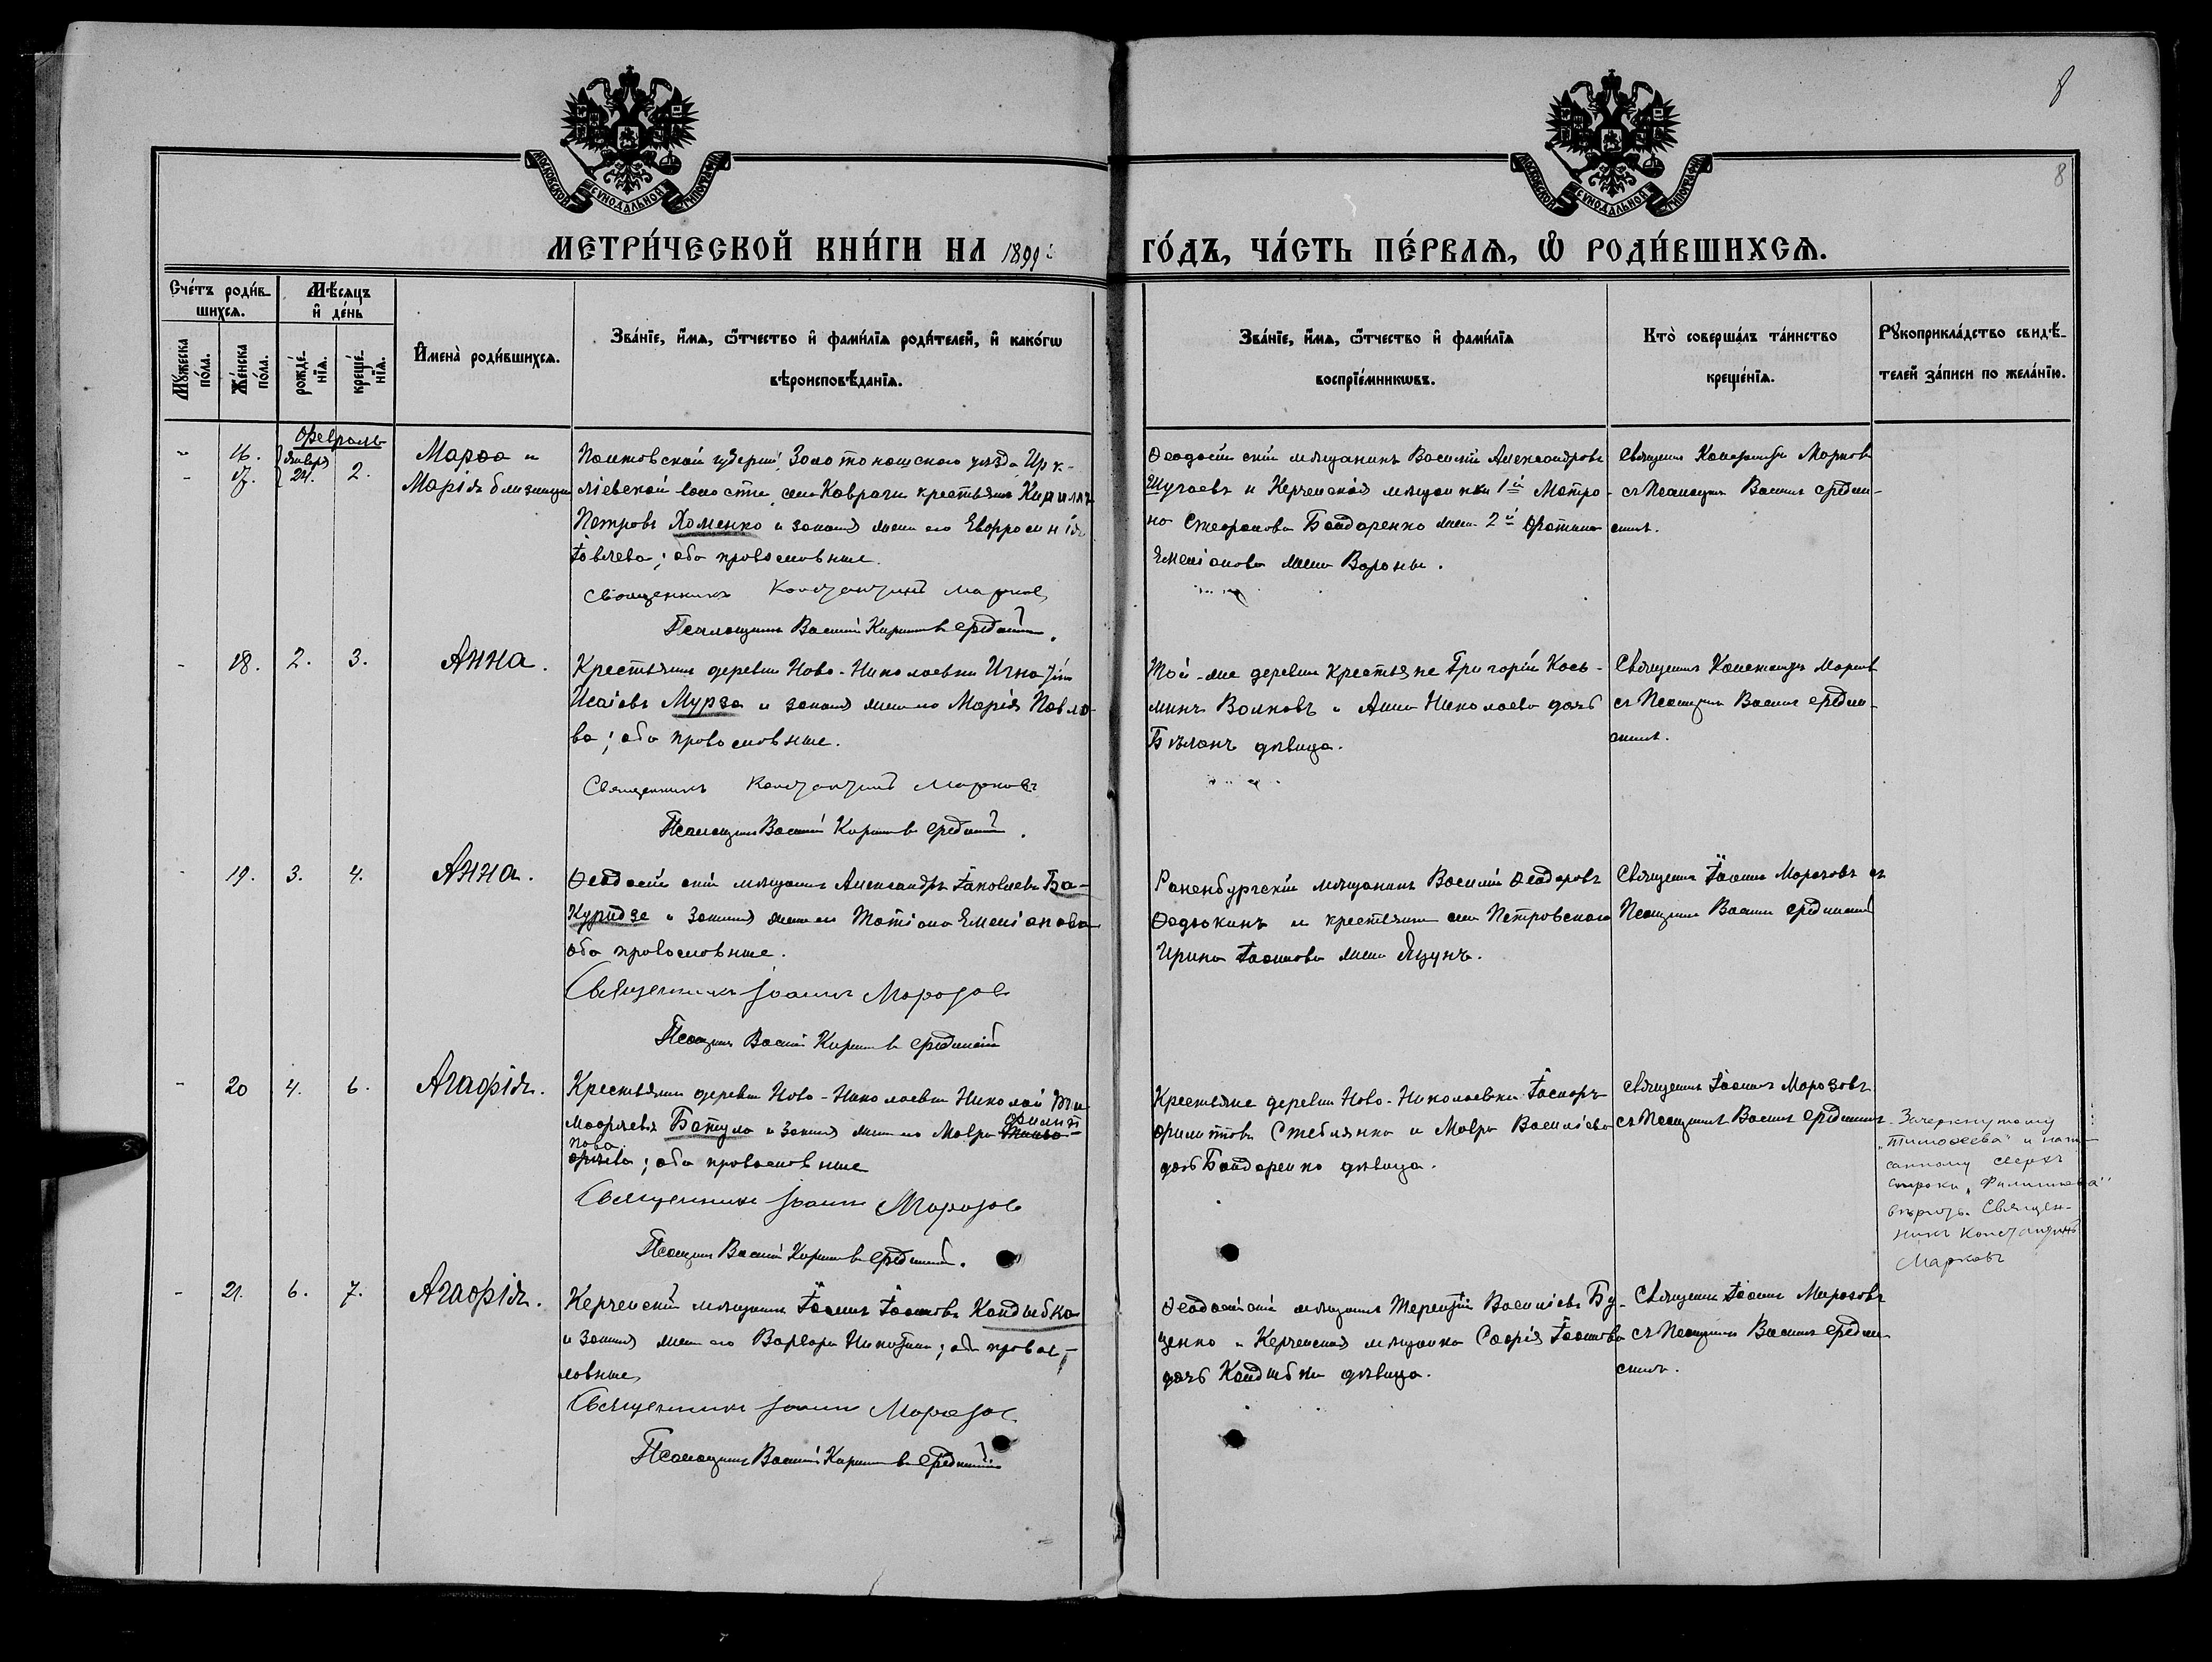 8
8
МОСКОВСКОЙ СѴНОДАЛЬНОЙ ТИПОГРАФІИ
МОСКОВСКОЙ СѴНОДАЛЬНОЙ ТИПОГРАФІИ
МЕТРИ́ЧЕСКОЙ КНИ́ГИ НА 1899
ГО́ДЪ, ЧА́СТЬ ПЕ́РВАѦ, Ѡ РОДИ́ВШИХСѦ.
Сче́тъ роди́в-
шихсѧ.
Мѣ́сѧцъ
и҆ де́нь
Мꙋ́жеска по́ла.
Же́нска по́ла.
рожде́нїѧ.
креще́нїѧ.
И҆мена̀ роди́вшихсѧ.
Зва́нїе, и҆́мѧ, ѻ҆́тчество и҆ фами́лїѧ роди́телей, и҆ како́гѡ
вѣроисповѣ́данїѧ.
Зва́нїе, и҆́мѧ, ѻ҆́тчество и҆ фами́лїѧ
воспрїе́мникѡвъ.
Кто̀ соверша́лъ та́инство
креще́нїѧ.
Рꙋкоприкла́дство свидѣ́-
телей за́писи по жела́нїю.
Февраль
16.
17.
Января
24.
2.
Марѳа и
Марія близнецы
Полтовской губерніи, Золотоношскаго уѣзда Ирк-
ліевской волости, села Коврачи крестьянинъ Кириллъ
Петровъ Хоменко и законная жена его Евфросинія
Іовлева; оба православные.
Священникъ Константинъ Марковъ
Псаломщикъ Василій Средин
Ѳеодосійскій мѣщанинъ Василій Александровъ
Шугаевъ и Керченская мѣщанка 1й Матро-
на Стефанова Бондаренко жена 2й Фотина
Емеліанова жена Вороны.
Священникъ Константинъ Марковъ
съ Псаломщик Василіем Средин-
скимъ.
18.
2.
3.
Анна.
Крестьянинъ деревни Ново-Николаевки Игнатій
Исаіевъ Мурза и законная жена его Марія Павло-
ва; оба православные.
Священникъ Константинъ Марковъ
Псаломщикъ Василій Средин
Той-же деревни крестьяне Григорій Кось-
минъ Волковъ и Анна Николаева дочь
Бѣланъ дѣвица.
Священникъ Константинъ Марков
съ Псаломщик Василіем Средин-
скимъ.
19.
3.
4.
Анна.
Ѳеодосійскій мѣщанинъ Александръ Іаковлевъ Ба-
куридзе и законная жена его Татіана Емеліанова
оба православные.
Священникъ Іоаннъ Морозовъ
Псаломщикъ Василій Средин
Раненбургскій мѣщанинъ Василій Ѳеодоровъ
Ѳедюкинъ и крестьянка села Петровскаго
Ирина Іоаннова жена Ящунъ.
Священникъ Іоаннъ Морозовъ съ
Псаломщик Василіем Средин
20
4.
6.
Агафія.
Крестьянинъ деревни Ново-Николаевки Николай Ти-
моѳеевъ Батула и законная жена его Мавра Филип
пова; оба православные
Священникъ Іоаннъ Морозовъ
Псаломщикъ Василій Средин
Крестьяне деревни Ново-Николаевки
Филиповъ Стеблянко и Мавра Василіева
дочь Бондаренко дѣвица.
Священникъ Іоаннъ Морозовъ
съ Псаломщик Василіем Средин
Зачеркнутому
„Тимоѳеева" и напи-
санному сверхъ
строки „Филиппова"
вѣрить. Священ-
никъ Константинъ
Марковъ
21.
6.
7.
Агафія.
Керченскій мѣщанинъ Іоаннъ Іоанновъ Кандыбка
и законная жена его Варвара Никитина; оба правос-
лавные
Священникъ Іоаннъ Морозовъ
Псаломщикъ Василій Средин
Ѳеодосійскій мѣщанинъ Терентій Василіевъ Бу-
ценко и Керченская мѣщанка Софія Іоаннова
дочь Кандыбки дѣвица.
Священникъ Іоаннъ Морозовъ
съ Псаломщик Василіем Средин-
скимъ.